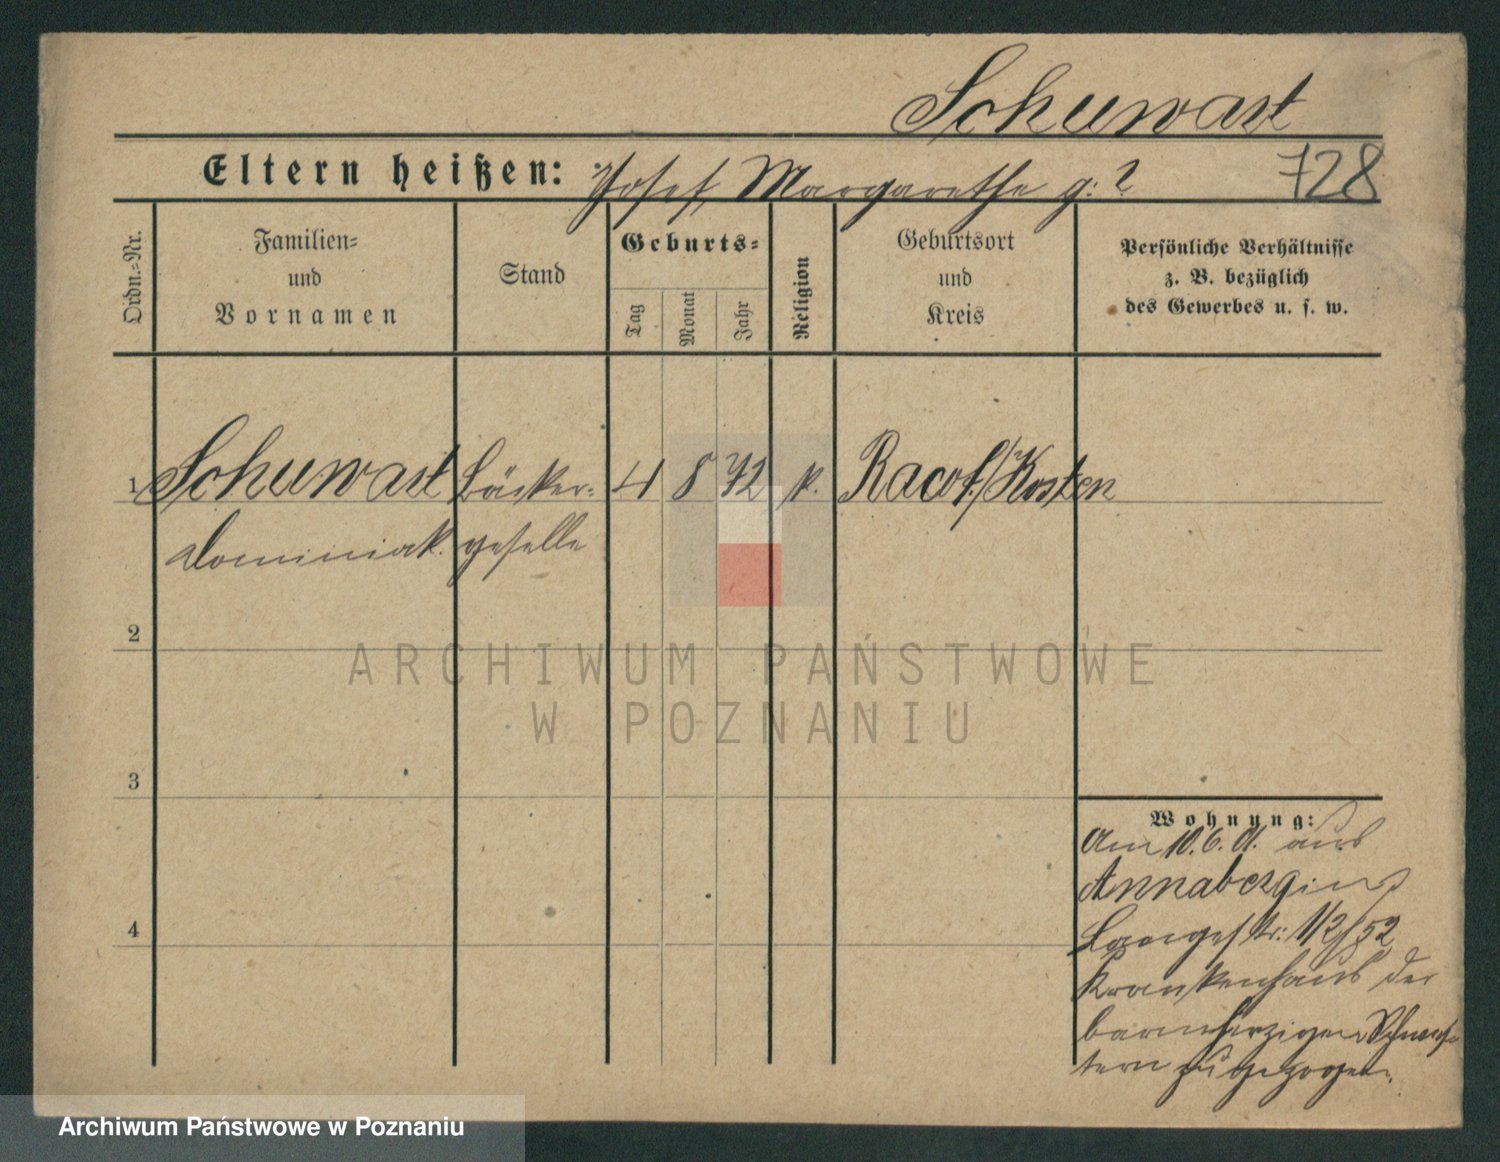 Schuwart
Eltern heißen: Josef, Margarethe g: ?
728
Ordn.=Nr.
Familien=
und
Vornamen
Stand
Geburts=
Tag
Monat
Jahr
Religion
Geburtsort
und
Kreis
Persönliche Verhältnisse
z. B. bezüglich
des Gewerbes u. s. w.
1 Schuwart Bäcker= 4 8 72 k. Racot/Kosten
Dominiak. geselle
2
ARCHIWUM PAŃSTWOWE
W POZNANIU
3
Wohnung:
Am 10.6.01. aus
Annaberg in
Langestr: 1/2/52
Krankenhaus der
barmherzigen Schwes=
tern zugezogen.
4
Archiwum Państwowe w Poznaniu